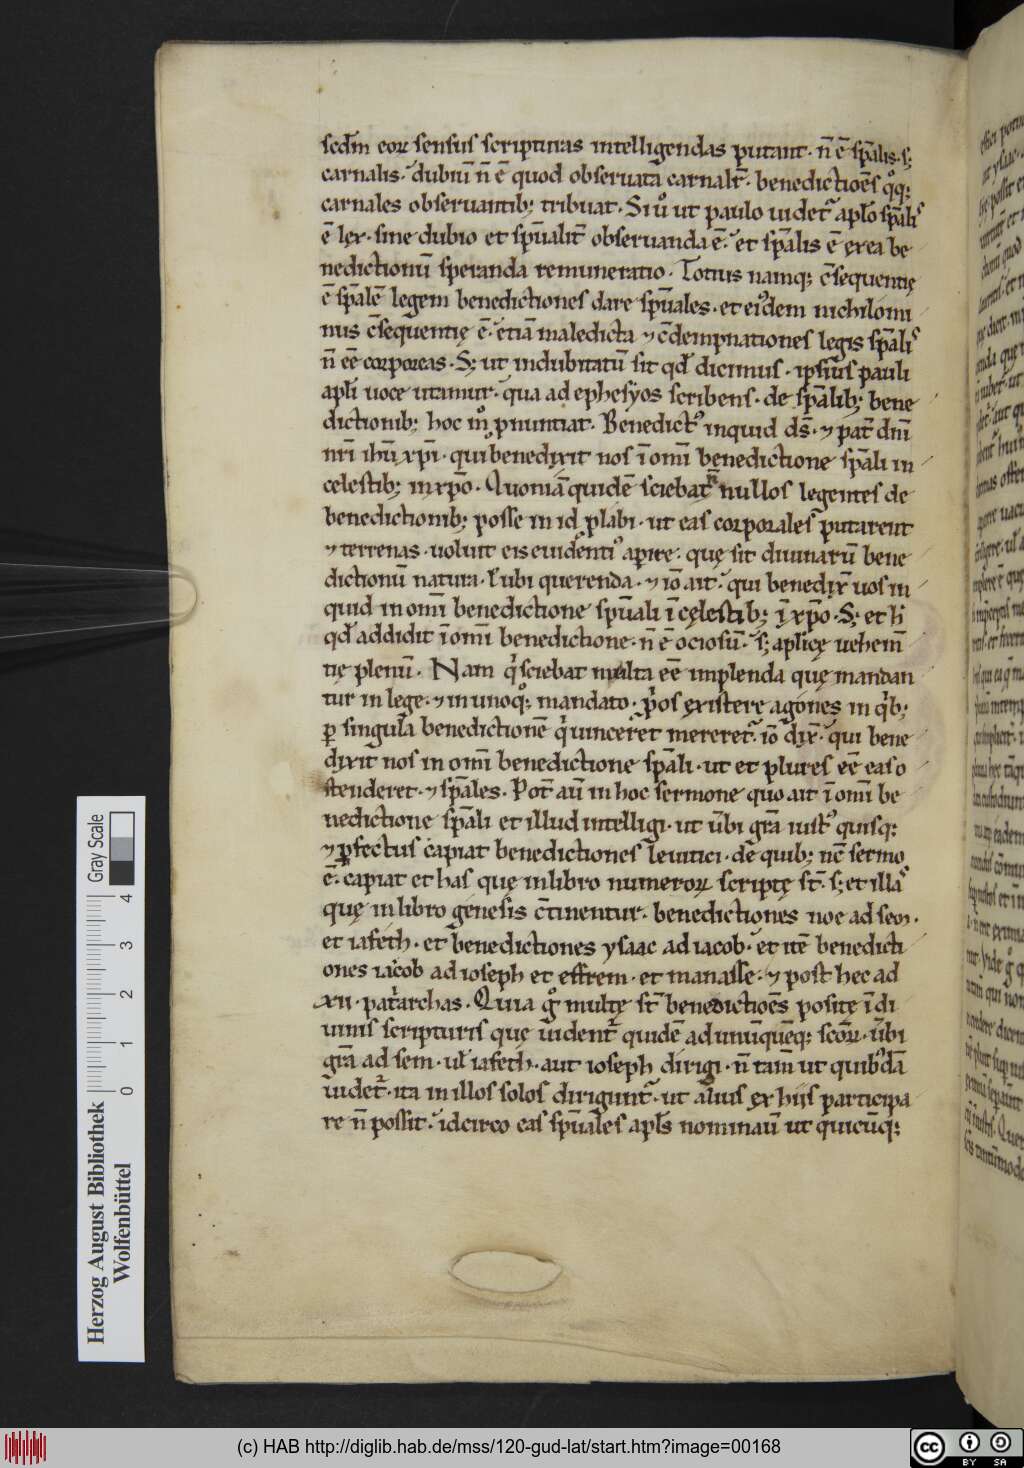 scdm eoꝝ sensus scripturas intelligendas putant· n̄ ē sp̄alis· sꝫ
carnalis· dubiū n̄ ē quod obseruata carnalit̄· benedictiōēs qͦqꝫ
carnales obseruantibꝫ tribuat· Si ūͦ ut paulo uidet̉ apl̄o sp̄alis
ē lex· sine dubio et sp̄ualit̄ obseruanda ē· et sp̄alis ē ex ea be
nedictionū speranda remuneratio· Totius namqꝫ ɔ̄sequentię
ē sp̄alē legem benedictiones dare sp̄uales· et eiꝰdem nichilomi
nus ɔ̄sequentię ē· etiā maledicta ⁊ ɔ̄dempnationes legis sp̄alis
n̄ eē corporeas· Sꝫ ut indubitatū sit qd̄ dicimus· ipsius pauli
apl̄i uoce utamur· qua ad ephesyos scribens· de sp̄alibꝫ bene
dictionibꝫ hoc m̊ pnuntiat· Benedictꝰ inquid ds̄· ⁊ pat̄ dn̄i
nr̄i ihū xp̄i· qui benedixit nos ī om̄i benedictione sp̄ali in
celestibꝫ in xp̄o· Quoniā quidē sciebat nullos legentes de
benedictionibꝫ posse in id plabi· ut eas corporales putarent
⁊ terrenas· uoluit eis euidentiꝰ aperire· quę sit diuinarū bene
dictionū natura· ł ubi querenda· ⁊ iō ait· qui benedix̄ uos in
quid in om̄i benedictione sp̄uali ī cęlestibꝫ ī xp̄o· Sꝫ et h̄
qd̄ addidit ī om̄i benedictione· n̄ ē ociosū· sꝫ aplicę uehem̄
tię plenū· Nam qͥ sciebat multa eē implenda quę mandan
tur in lege· ⁊ in unoqͦqꝫ mandato· pͥos existere agones in qͥbꝫ
ꝑ singula benedictionē qͥ uinceret mereret̉· iō dix̄· qui bene
dixit nos in om̄i benedictione sp̄ali· ut et plures eē eas o
stenderet· ⁊ sp̄ales· Pot̄ aū in hoc sermone quo ait ī om̄i be
nedictione sp̄ali et illud intelligi· ut ūbi gr̄a iustꝰ quisqꝫ
⁊ ꝑfectus capiat benedictiones leuitici· de quibꝫ nc̄ sermo
ē· capiat et has quę in libro numeroꝝ scriptę st̄· sꝫ et illas
quę in libro genesis ɔ̄tinentur· benedictiones noe ad sem·
et iafeth· et benedictiones ysaac ad iacob· et itē benedicti
ones iacob ad ioseph et effrem· et manasse· ⁊ post hec ad
xii· patͥarchas· Quia gͦ multę st̄ benedictiōēs positę ī di
uinis scripturis quę uident̉ quidē ad unūquēqꝫ scōꝝ· ūbi
gr̄a ad sem· ul̄ iafeth· aut ioseph dirigi· n̄ tam̄ ut quibꝰdā
uidet̉· ita in illos solos dirigunt̉· ut alius ex hijs participa
re n̄ possit· idcirco eas sp̄uales apl̄s nominauī ut quicūqꝫ
Herzog August Bibliothek
Wolfenbüttel
Gray Scale
0 1 2 3 4
(c) HAB http://diglib.hab.de/mss/120-gud-lat/start.htm?image=00168
cc BY SA